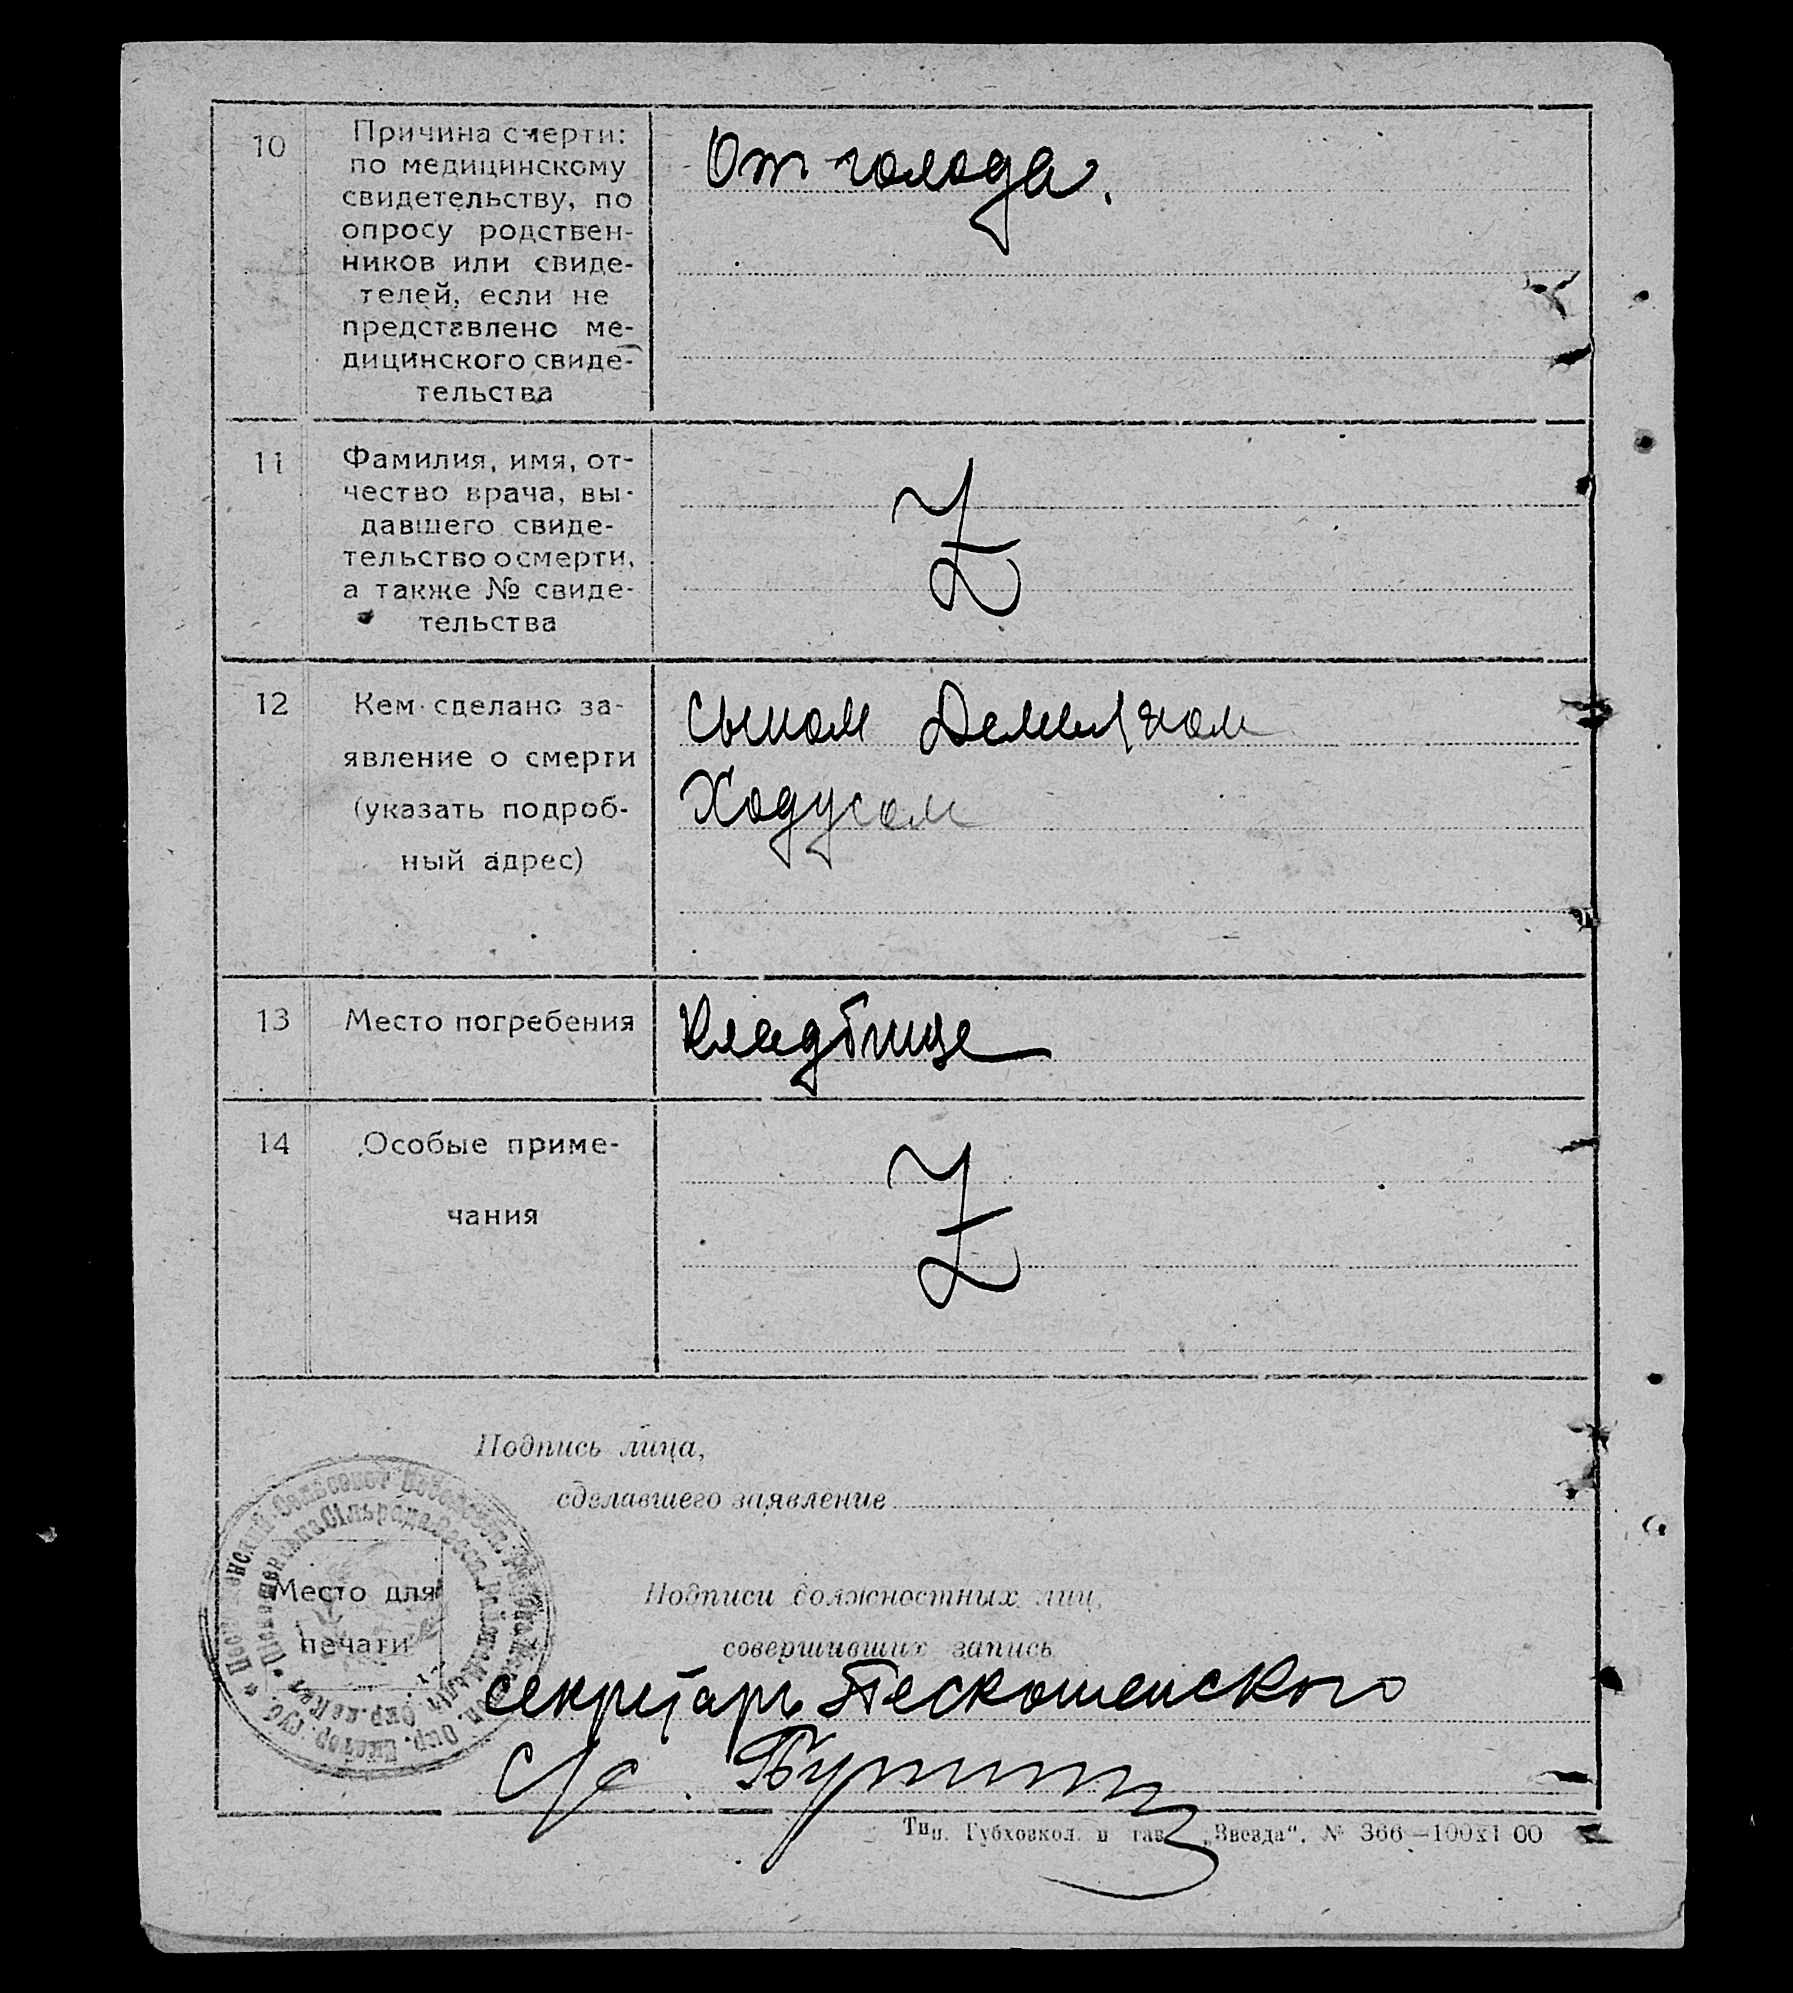 10
Причина смерти:
по медицинскому
свидетельству, по
опросу родствен-
ников или свиде-
телей, если не
представлено ме-
дицинского свиде-
тельства
От голода.
11
Фамилия, имя, от-
чество врача, вы-
давшего свиде-
тельство о смерти,
а также № свиде-
тельства
Z
12
Кем сделано за-
явление о смерти
(указать подроб-
ный адрес)
Сыном Демьяном
Ходусом
13
Место погребения
Кладбище
14
Особые приме-
чания
Z
Подпись лица,
сделавшего заявление
Место для
печати
Подписи должностных лиц,
совершивших запись
секретарь Пескошенского
с/с.
Тип. Губховкол. и „Звезда“. № 366—100х1 00